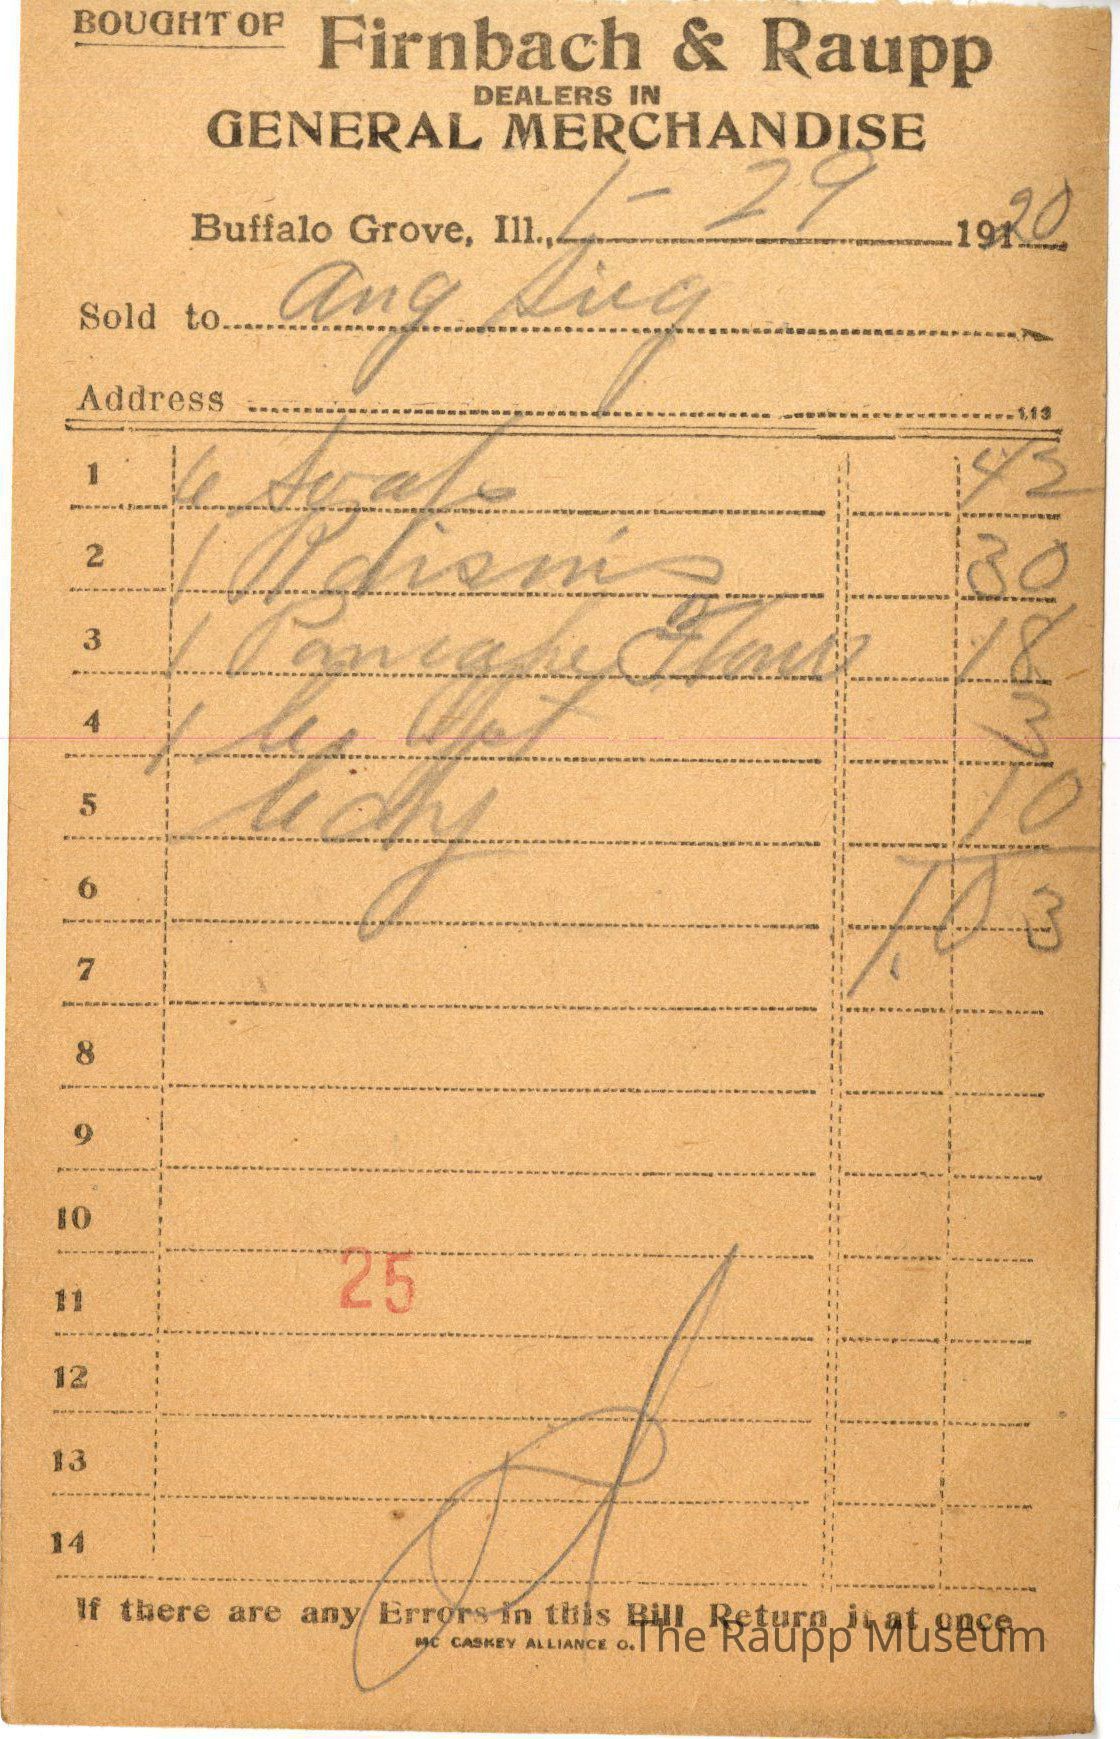 BOUGHT OF Firnbach & Raupp
DEALERS IN
GENERAL MERCHANDISE
Buffalo Grove, Ill., 1-29 19120
Sold to Aug
Address
113
1 6 Soaps 42
2 1 Raisins 30
3 1 Pancake Flour 18
4 1 3
5 Cdy 10
6 1.03
7
8
9
10
25
11
12
13
14
If there are any Errors in this Bill Return it at once
MC CASKEY ALLIANCE O.
The Raupp Museum